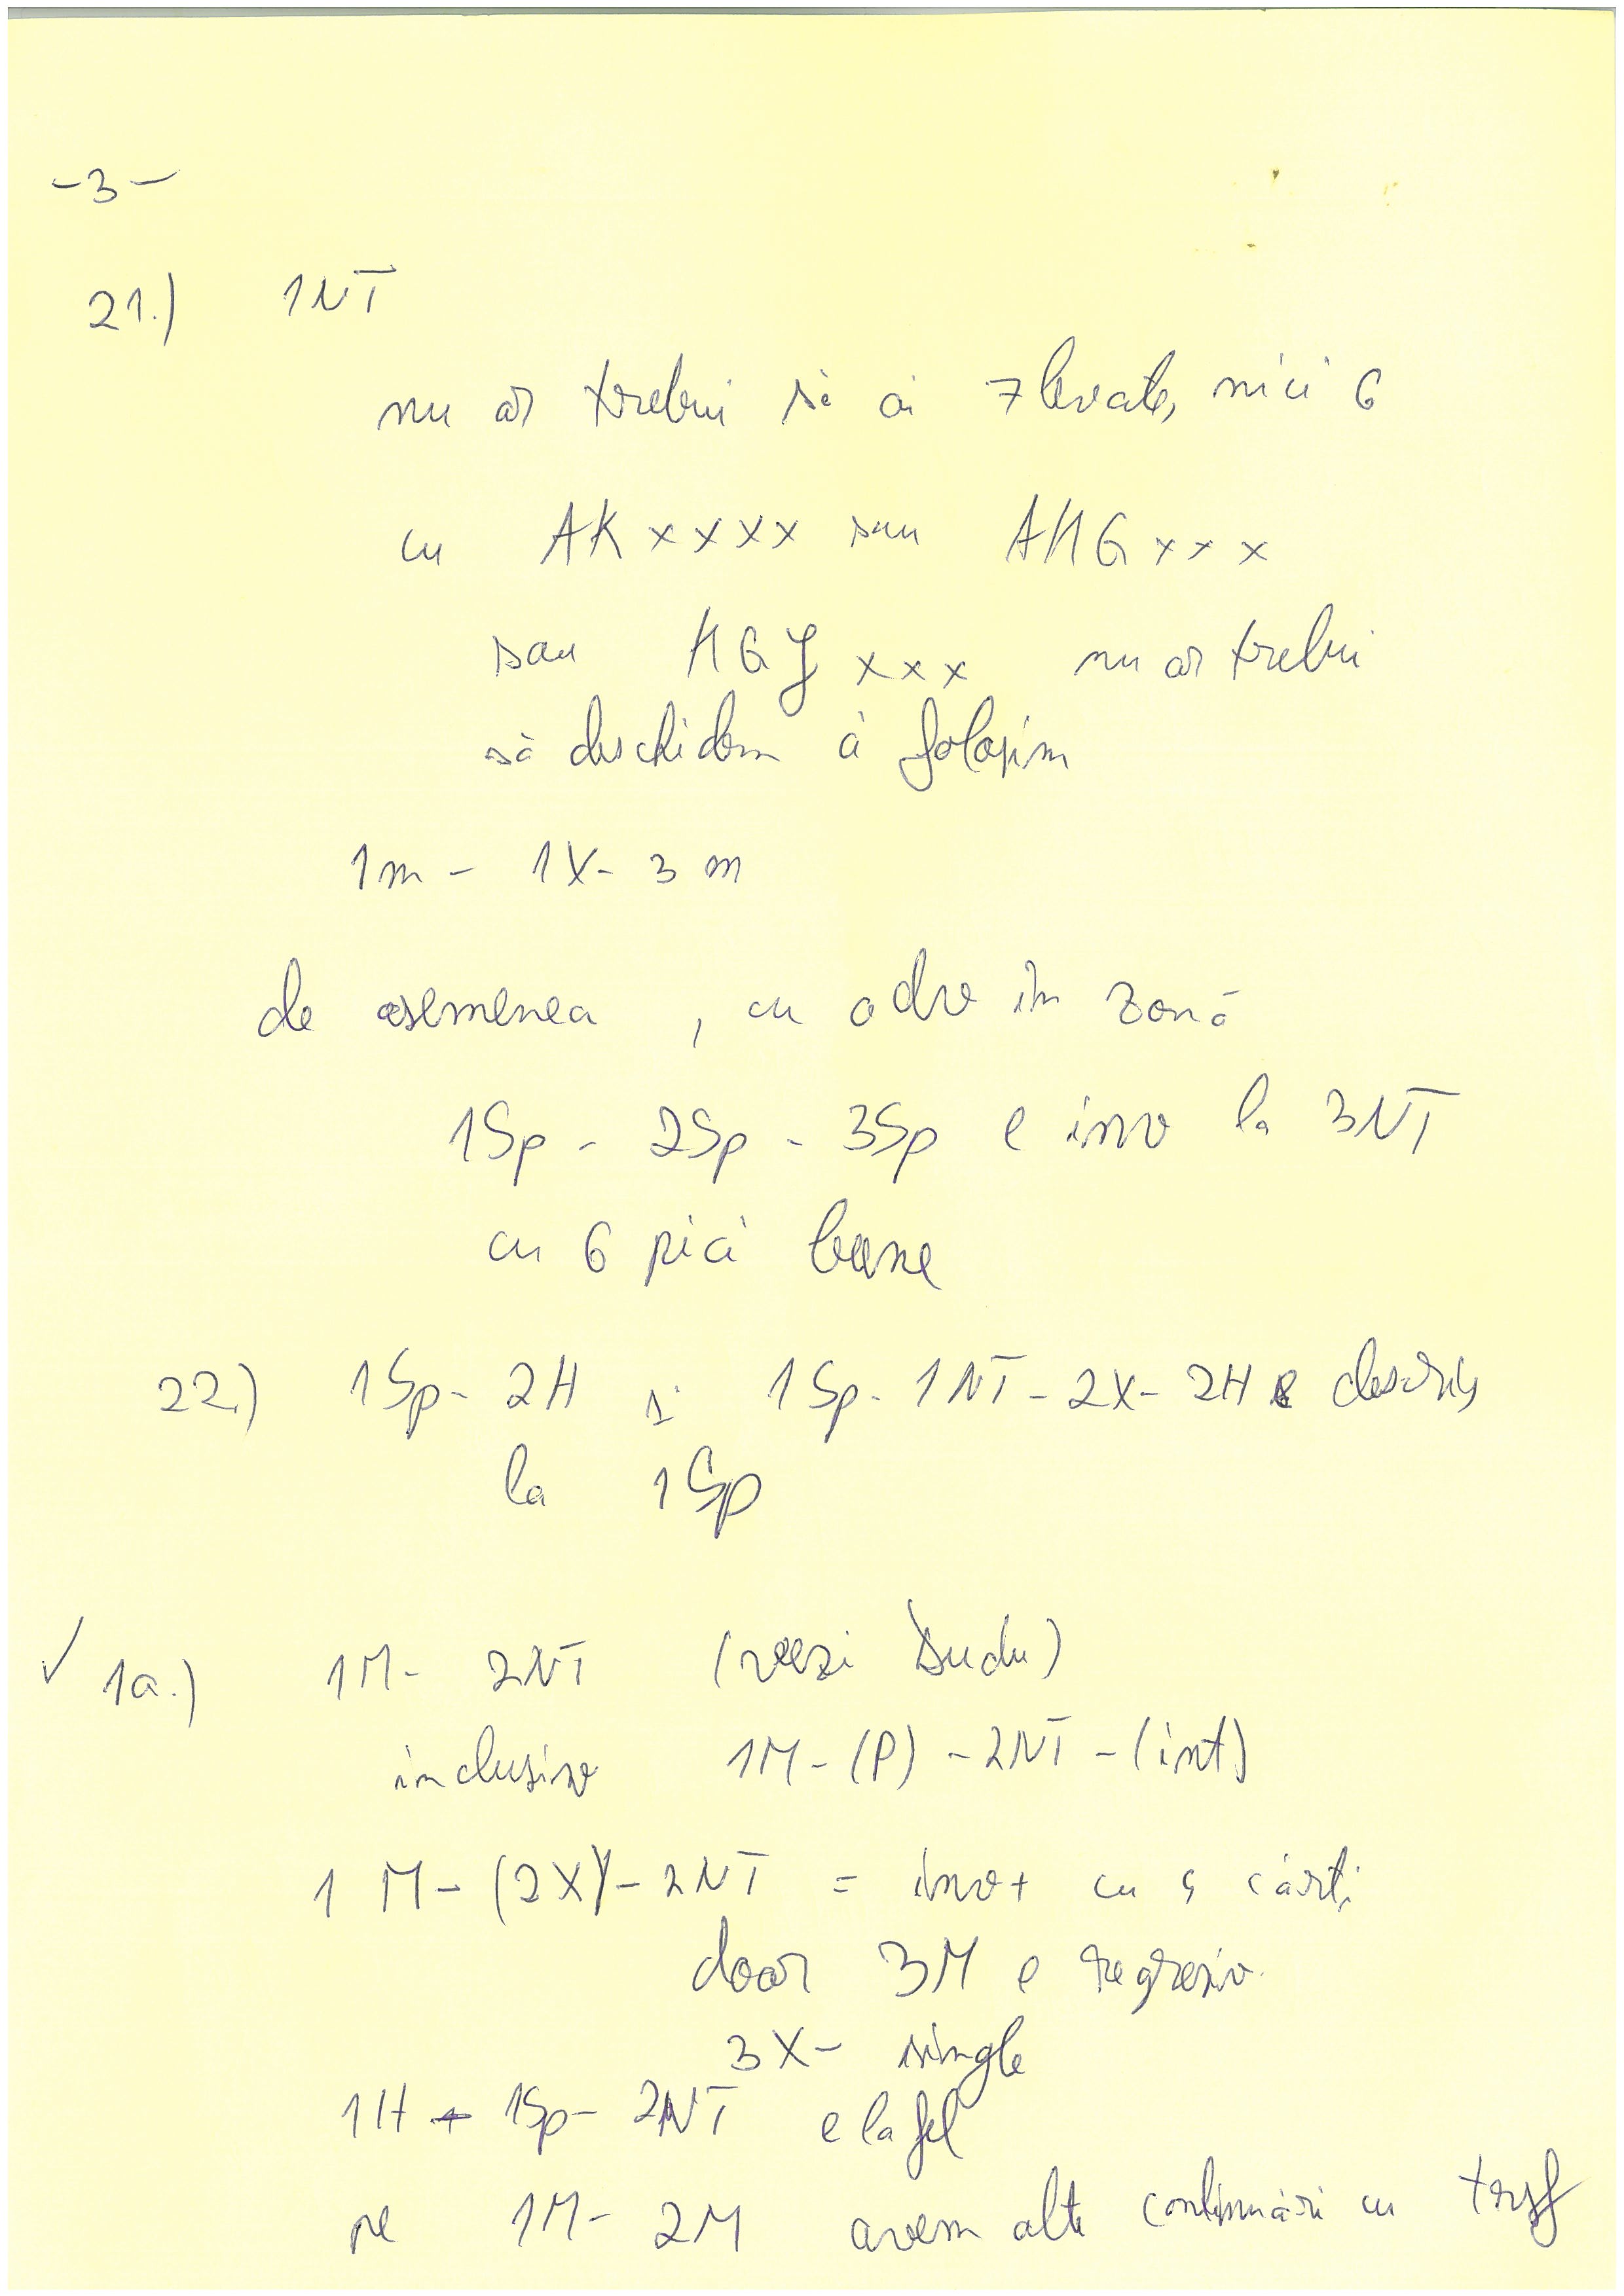 -3-
21.) 1NT
nu ar trebui să ai 7 levate, nici 6
cu AKxxxx sau AKQxxx
sau KQJxxx nu ar trebui
să deschidem ci folosim
1m - 1X - 3m
de asemenea, cu adv în zonă
1Sp - 2Sp - 3Sp e inv la 3NT
cu 6 pici bune
22.) 1Sp - 2H și 1Sp - 1NT - 2X - 2H e descris
la 1Sp
✓ 1a.) 1M - 2NT (vezi Dudu)
inclusiv 1M - (P) - 2NT - (int)
1M - (2X) - 2NT = inv+ cu 4 cărți
doar 3M e regresiv.
3X - single
1H - 1Sp - 2NT e la fel
pe 1M - 2M avem alte continuări cu trsf